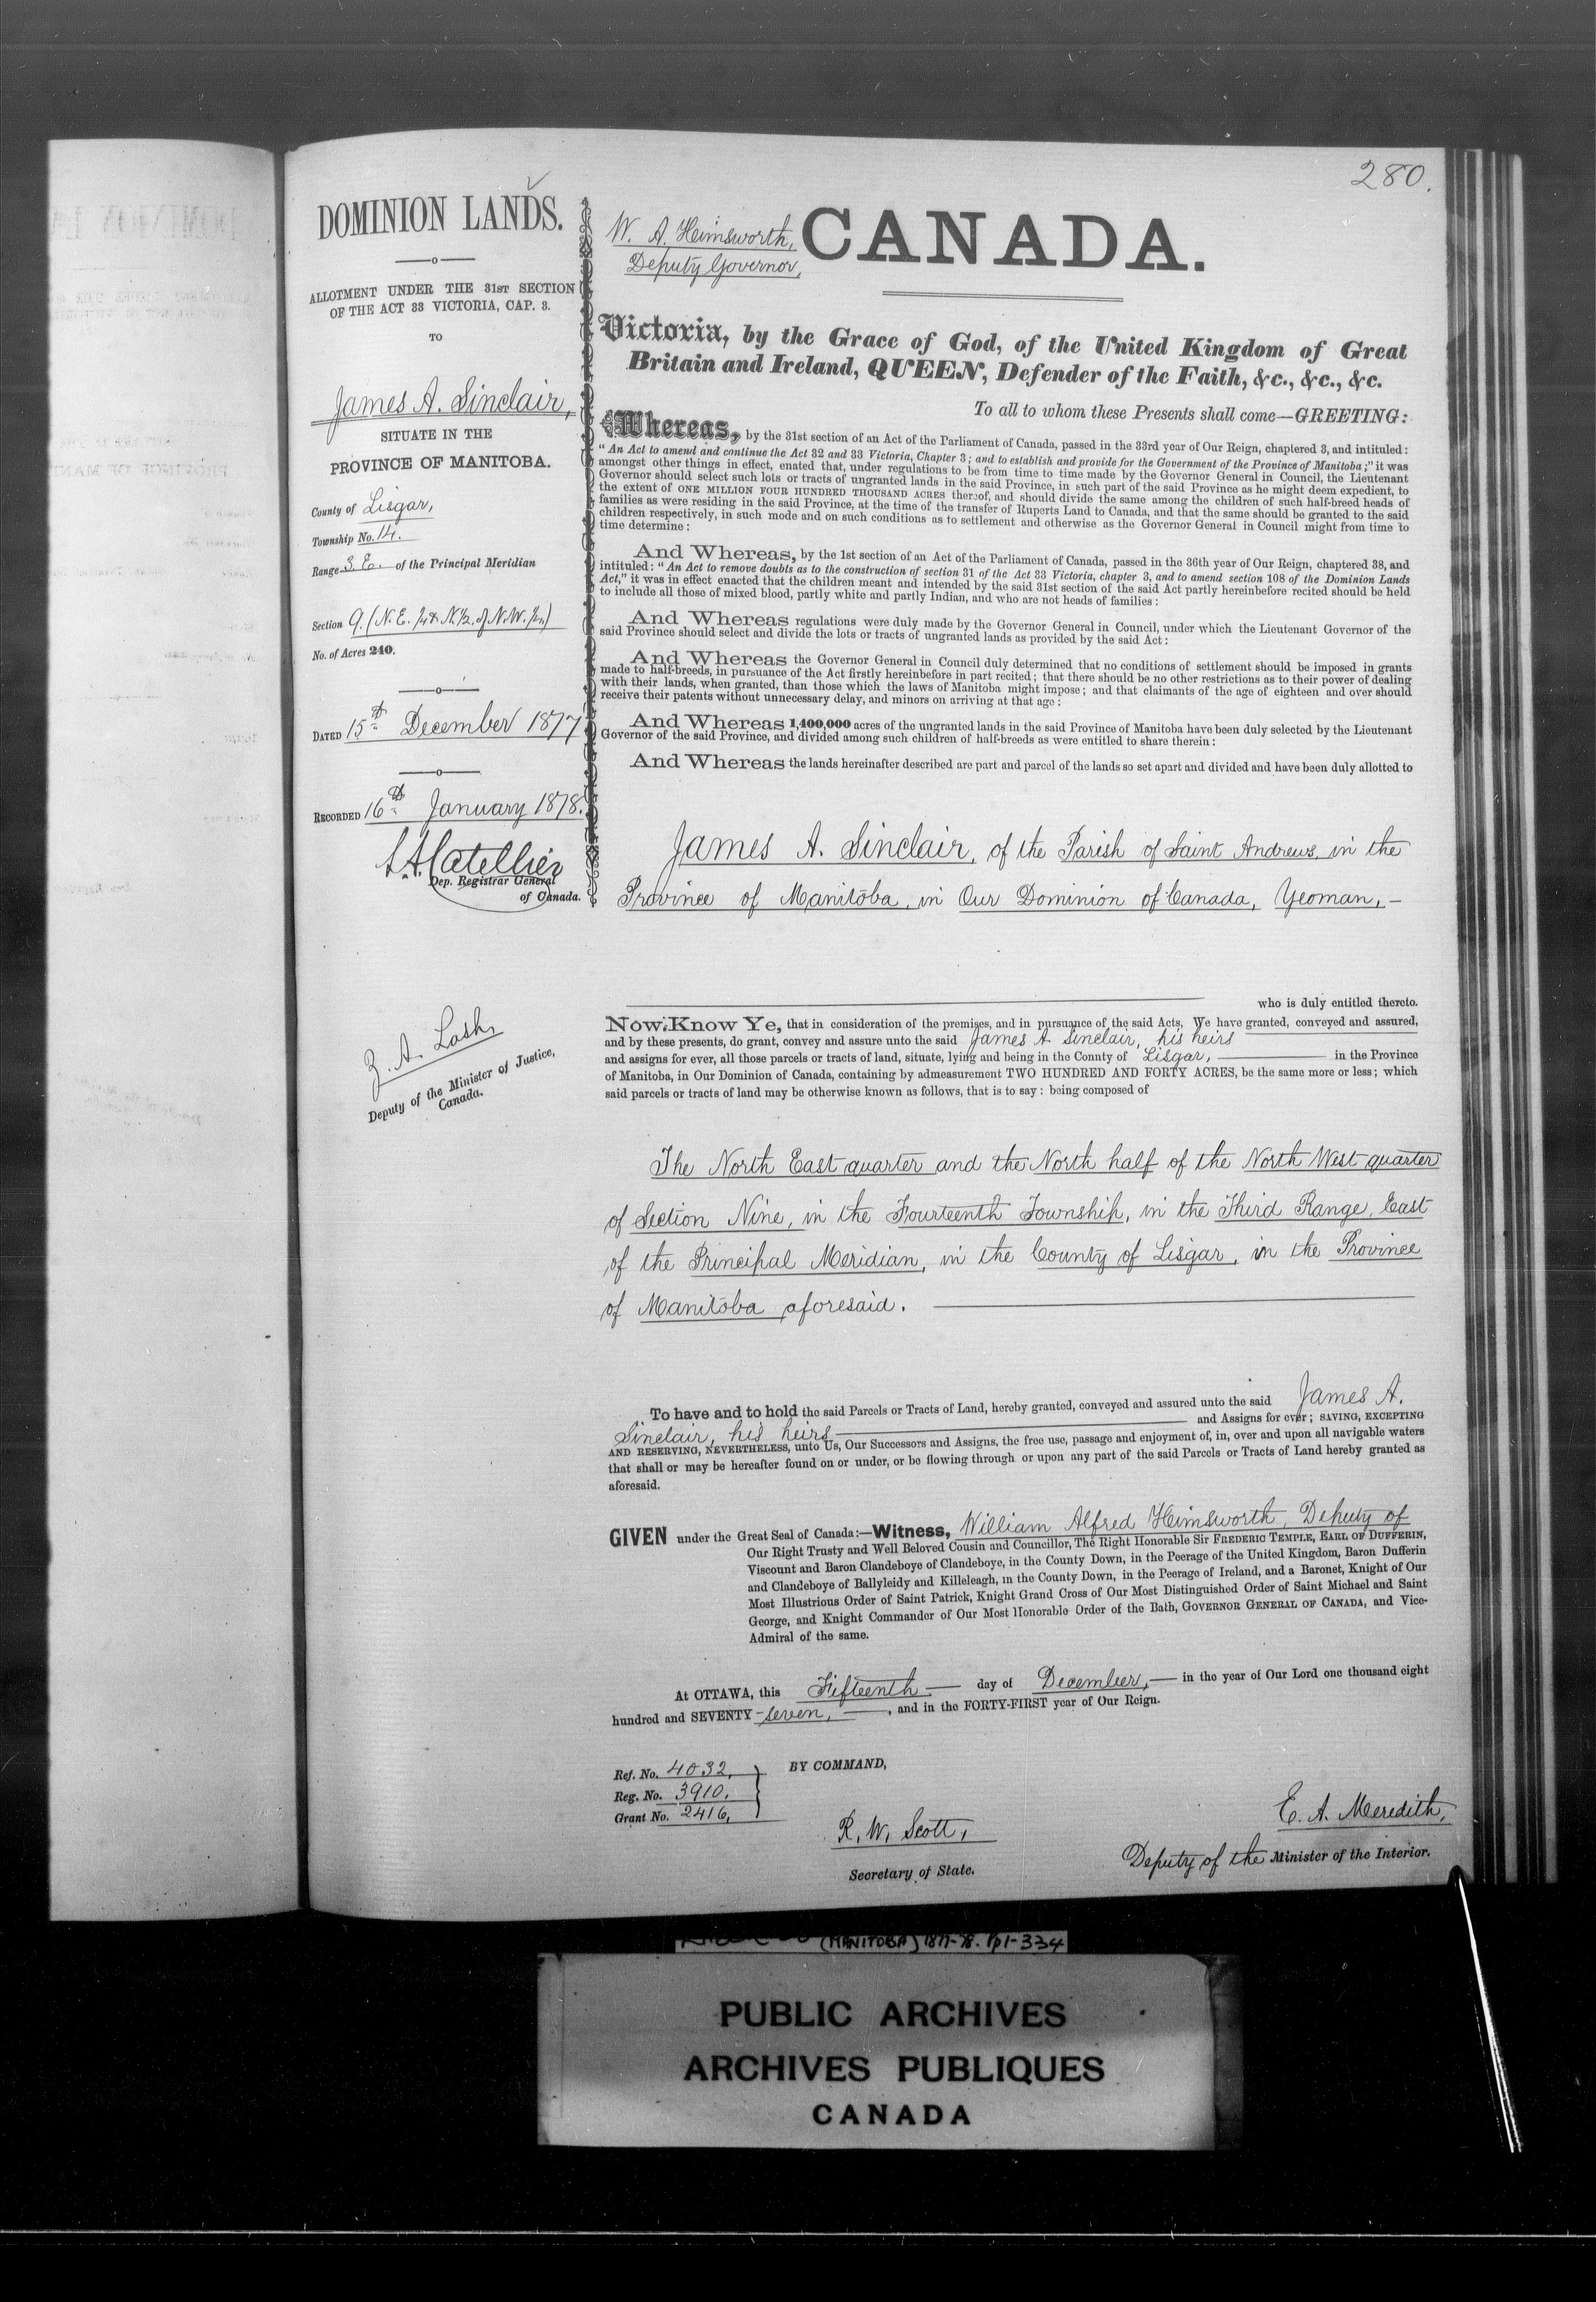 280.
DOMINION LANDS.
ALLOTMENT UNDER THE 31ST SECTION
OF THE ACT 33 VICTORIA, CAP. 3.
TO
James A. Sinclair,
SITUATE IN THE
PROVINCE OF MANITOBA.
County of Lisgar,
Township No. 14.
Range 3. E. of the Principal Meridian
Section 9. (N.E. 1/4 & N. 1/2, of N.W. 1/4)
No. of Acres 240.
DATED 15th December 1877
RECORDED 16th January 1878.
L.A. Catellier
Dep. Registrar General
of Canada.
Z. A. Lash,
Deputy of the Minister of Justice,
Canada.
W. A. Heimsworth,
Deputy Governor,
CANADA.
Victoria, by the Grace of God, of the United Kingdom of Great
Britain and Ireland, QUEEN, Defender of the Faith, &c., &c., &c.
To all to whom these Presents shall come—GREETING:
Whereas, by the 31st section of an Act of the Parliament of Canada, passed in the 33rd year of Our Reign, chaptered 3, and intituled:
"An Act to amend and continue the Act 32 and 33 Victoria, Chapter 3; and to establish and provide for the Government of the Province of Manitoba;" it was
amongst other things in effect, enated that, under regulations to be from time to time made by the Governor General in Council, the Lieutenant
Governor should select such lots or tracts of ungranted lands in the said Province, in such part of the said Province as he might deem expedient, to
the extent of ONE MILLION FOUR HUNDRED THOUSAND ACRES thereof, and should divide the same among the children of such half-breed heads of
families as were residing in the said Province, at the time of the transfer of Ruperts Land to Canada, and that the same should be granted to the said
children respectively, in such mode and on such conditions as to settlement and otherwise as the Governor General in Council might from time to
time determine:
And Whereas, by the 1st section of an Act of the Parliament of Canada, passed in the 36th year of Our Reign, chaptered 38, and
intituled: "An Act to remove doubts as to the construction of section 31 of the Act 33 Victoria, chapter 3, and to amend section 108 of the Dominion Lands
Act," it was in effect enacted that the children meant and intended by the said 31st section of the said Act partly hereinbefore recited should be held
to include all those of mixed blood, partly white and partly Indian, and who are not heads of families:
And Whereas regulations were duly made by the Governor General in Council, under which the Lieutenant Governor of the
said Province should select and divide the lots or tracts of ungranted lands as provided by the said Act:
And Whereas the Governor General in Council duly determined that no conditions of settlement should be imposed in grants
made to half-breeds, in pursuance of the Act firstly hereinbefore in part recited; that there should be no other restrictions as to their power of dealing
with their lands, when granted, than those which the laws of Manitoba might impose; and that claimants of the age of eighteen and over should
receive their patents without unnecessary delay, and minors on arriving at that age:
And Whereas 1,400,000 acres of the ungranted lands in the said Province of Manitoba have been duly selected by the Lieutenant
Governor of the said Province, and divided among such children of half-breeds as were entitled to share therein:
And Whereas the lands hereinafter described are part and parcel of the lands so set apart and divided and have been duly allotted to
James A. Sinclair, of the Parish of Saint Andrews, in the
Province of Manitoba, in Our Dominion of Canada, Yeoman,—
who is duly entitled thereto.
Now Know Ye, that in consideration of the premises, and in pursuance of the said Acts, We have granted, conveyed and assured,
and by these presents, do grant, convey and assure unto the said James A Sinclair, his heirs
and assigns for ever, all those parcels or tracts of land, situate, lying and being in the County of Lisgar, in the Province
of Manitoba, in Our Dominion of Canada, containing by admeasurement TWO HUNDRED AND FORTY ACRES, be the same more or less; which
said parcels or tracts of land may be otherwise known as follows, that is to say: being composed of
The North East quarter and the North half of the North West quarter
of Section Nine, in the Fourteenth Township, in the Third Range, East
of the Principal Meridian, in the County of Lisgar, in the Province
of Manitoba aforesaid.
To have and to hold the said Parcels or Tracts of Land, hereby granted, conveyed and assured unto the said James A.
Sinclair, his heirs and Assigns for ever; SAVING, EXCEPTING
AND RESERVING, NEVERTHELESS, unto Us, Our Successors and Assigns, the free use, passage and enjoyment of, in, over and upon all navigable waters
that shall or may be hereafter found on or under, or be flowing through or upon any part of the said Parcels or Tracts of Land hereby granted as
aforesaid.
GIVEN under the Great Seal of Canada:—Witness, William Alfred Heimsworth, Deputy of
Our Right Trusty and Well Beloved Cousin and Councillor, The Right Honorable Sir FREDERIC TEMPLE, EARL OF DUFFERIN,
Viscount and Baron Clandeboye of Clandeboye, in the County Down, in the Peerage of the United Kingdom, Baron Dufferin
and Clandeboye of Ballyleidy and Killeleagh, in the County Down, in the Peerage of Ireland, and a Baronet, Knight of Our
Most Illustrious Order of Saint Patrick, Knight Grand Cross of Our Most Distinguished Order of Saint Michael and Saint
George, and Knight Commander of Our Most Honorable Order of the Bath, GOVERNOR GENERAL OF CANADA, and Vice-
Admiral of the same.
At OTTAWA, this Fifteenth day of December, in the year of Our Lord one thousand eight
hundred and SEVENTY-seven, , and in the FORTY-FIRST year of Our Reign.
Ref. No. 4032,
Reg. No. 3910,
Grant No. 2416,
BY COMMAND,
R. W. Scott,
Secretary of State.
E. A. Meredith,
Deputy of the Minister of the Interior.
(MANITOBA) 1877-78. pp1-334
PUBLIC ARCHIVES
ARCHIVES PUBLIQUES
CANADA